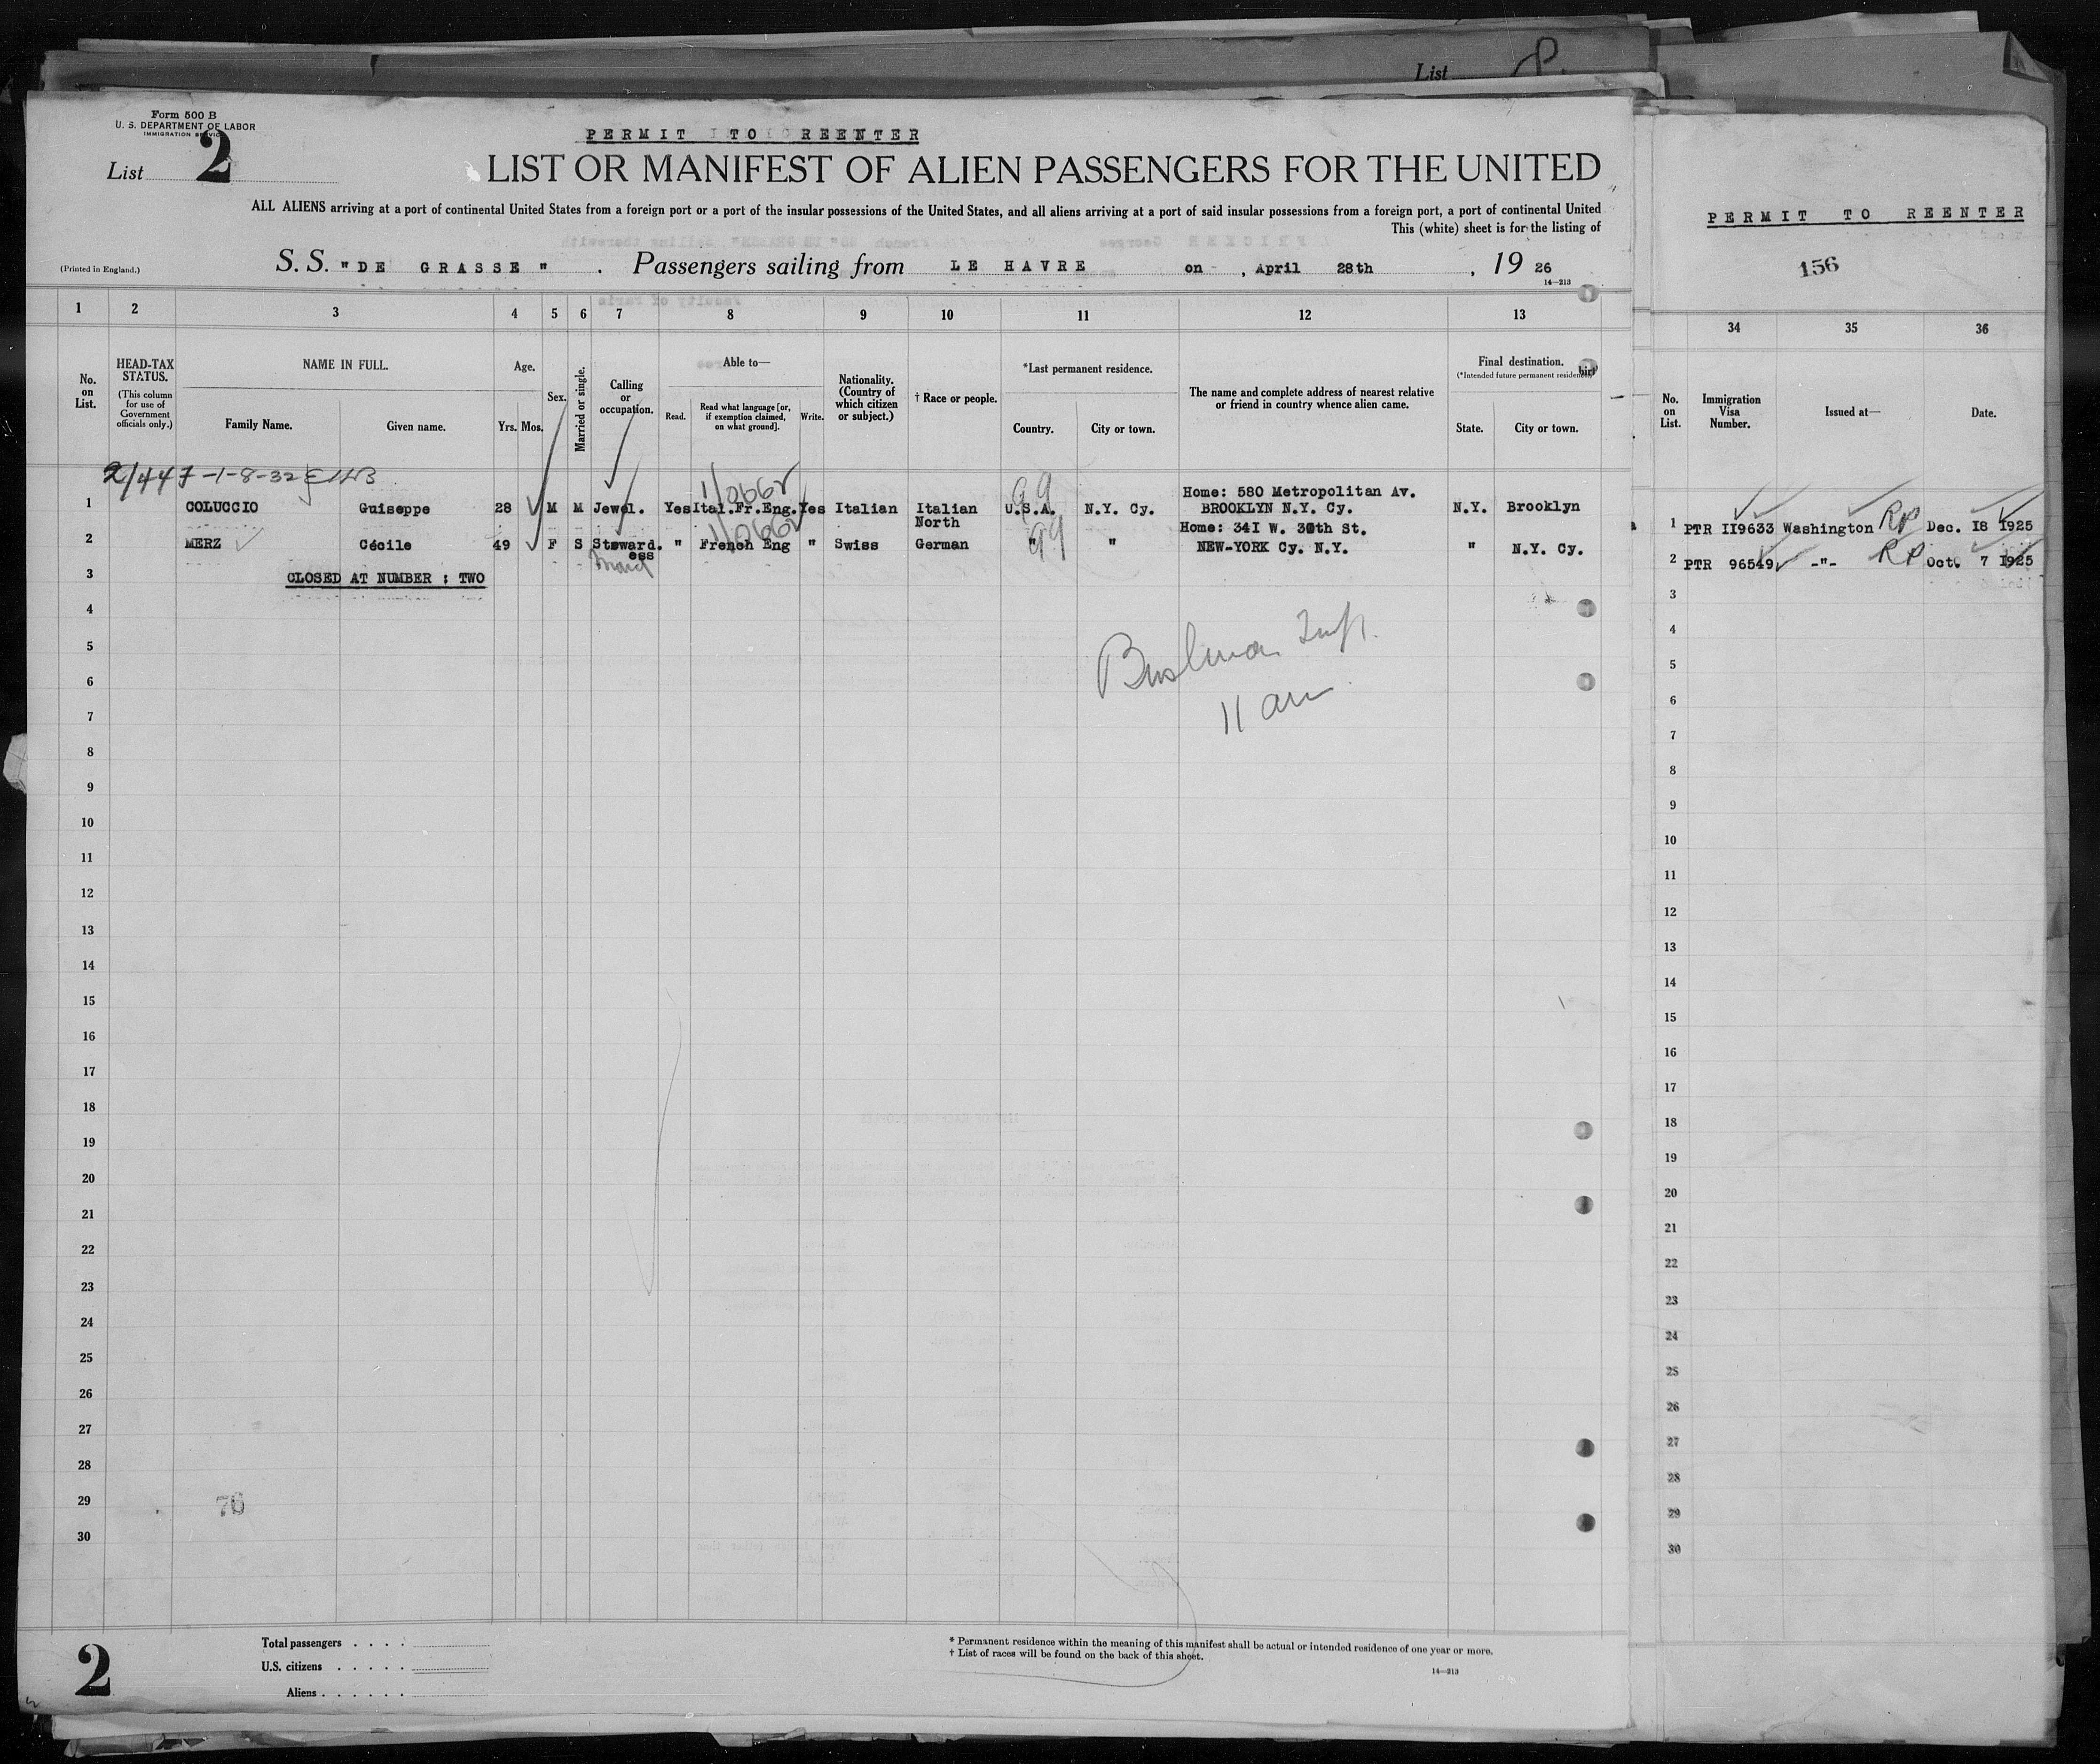 List
Form 500 B
U. S. DEPARTMENT OF LABOR
IMMIGRATION SERVICE
List 2
PERMIT TO REENTER
LIST OR MANIFEST OF ALIEN PASSENGERS FOR THE UNITED
ALL ALIENS arriving at a port of continental United States from a foreign port or a port of the insular possessions of the United States, and all aliens arriving at a port of said insular possessions from a foreign port, a port of continental United
This (white) sheet is for the listing of
(Printed in England.)
S. S. "DE GRASSE". Passengers sailing from LE HAVRE on, April 28th, 19 26
14—213
1 2 3 4 5 6 7 8 9 10 11 12 13
No. on List.
HEAD-TAX STATUS.
(This column for use of Government officials only.)
NAME IN FULL.
Family Name. Given name.
Age.
Yrs. Mos.
Sex.
Married or single.
Calling or occupation.
Able to—
Read. Read what language [or, if exemption claimed, on what ground]. Write.
Nationality. (Country of which citizen or subject.)
† Race or people.
*Last permanent residence.
Country. City or town.
The name and complete address of nearest relative or friend in country whence alien came.
Final destination.
(*Intended future permanent residence.)
State. City or town.
2/447-1-8-32
1 COLUCCIO Guiseppe 28 M M Jewel. Yes Ital.Fr.Eng. Yes Italian Italian North U.S.A. N.Y. Cy. Home: 580 Metropolitan Av. BROOKLYN N.Y. Cy. N.Y. Brooklyn
2 MERZ Cécile 49 F S Steward.ess " French Eng " Swiss German " " Home: 34I W. 30th St. NEW-YORK Cy. N.Y. " N.Y. Cy.
Maid
3 CLOSED AT NUMBER : TWO
4
5
6
7
11 am
8
9
10
11
12
13
14
15
16
17
18
19
20
21
22
23
24
25
26
27
28
29
76
30
2
Total passengers . . . .
U.S. citizens . . . . .
Aliens . . . . . .
* Permanent residence within the meaning of this manifest shall be actual or intended residence of one year or more.
† List of races will be found on the back of this sheet.
14—213
PERMIT TO REENTER
156
34 35 36
No. on List.
Immigration Visa Number.
Issued at—
Date.
1 PTR II9633 Washington RP Dec. I8 I925
2 PTR 96549 -"- RP Oct. 7 I925
3
4
5
6
7
8
9
10
11
12
13
14
15
16
17
18
19
20
21
22
23
24
25
26
27
28
29
30